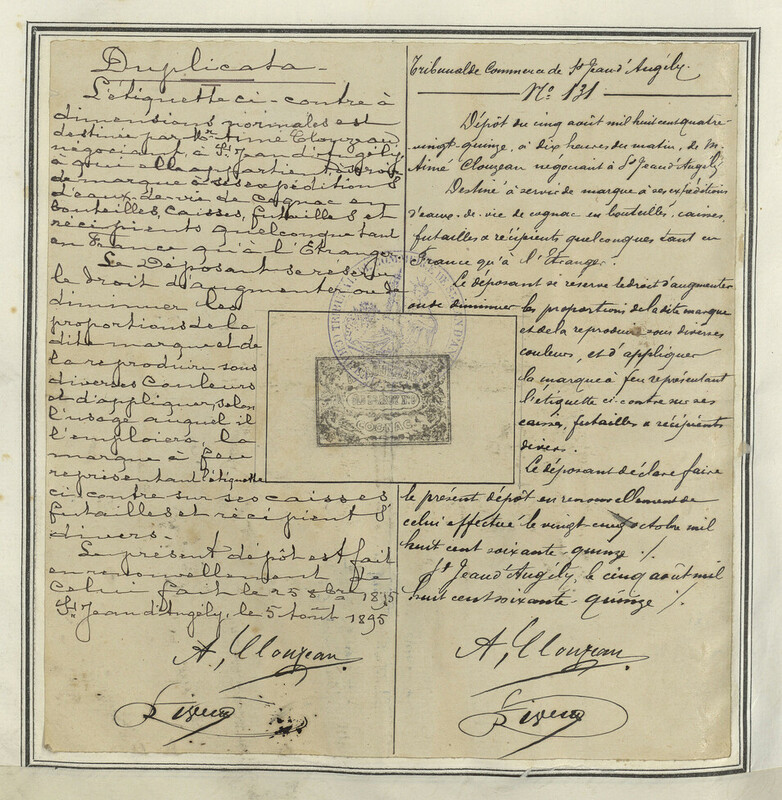 Duplicata.
L'étiquette ci-contre à
dimensions normales est
destinée par Mr Aimé Clouzeau
négociant, à St Jean d'Angély
à qui elle appartient, à servir
de marque à ses expéditions
d'eaux-de-vie de cognac en
bouteilles, caisses, futailles et
récipients quelconques tant
en France qu'à l'Etranger.
Le Déposant se réserve
le droit d'augmenter ou de
diminuer les
proportions de la
dite marque et de
la reproduire sous
diverses couleurs
et d'appliquer, selon
l'usage auquel il
l'emploiera, la
marque à feu
représentant l'étiquette
ci-contre sur ses caisses
futailles et récipients
divers.
Le présent dépôt est fait
en renouvellement de
celui fait le 25 8bre 1895
St Jean d'Angély, le 5 Août 1895
A, Clouzeau.
Tribunal de Commerce de St Jean d'Angély.
No 131
Dépôt du cinq août mil huit cent quatre-
vingt-quinze, à dix heures du matin, de M.
Aimé Clouzeau négociant à St Jean d'Angély
Destiné à servir de marque à ses expéditions
d'eaux-de-vie de cognac en bouteilles, caisses,
futailles & récipients quelconques tant en
France qu'à l'Etranger.
Le déposant se réserve le droit d'augmenter
ou de diminuer les proportions de la dite marque
et de la reproduire sous diverses
couleurs, et d'appliquer
la marque à feu représentant
l'étiquette ci-contre sur ses
caisses, futailles & récipients
divers.
Le déposant déclare faire
le présent dépôt en renouvellement de
celui effectué le vingt cinq octobre mil
huit cent soixante quinze ./.
St Jean d'Angély, le cinq août mil
huit cent soixante quinze ./.
A, Clouzeau.
COGNAC